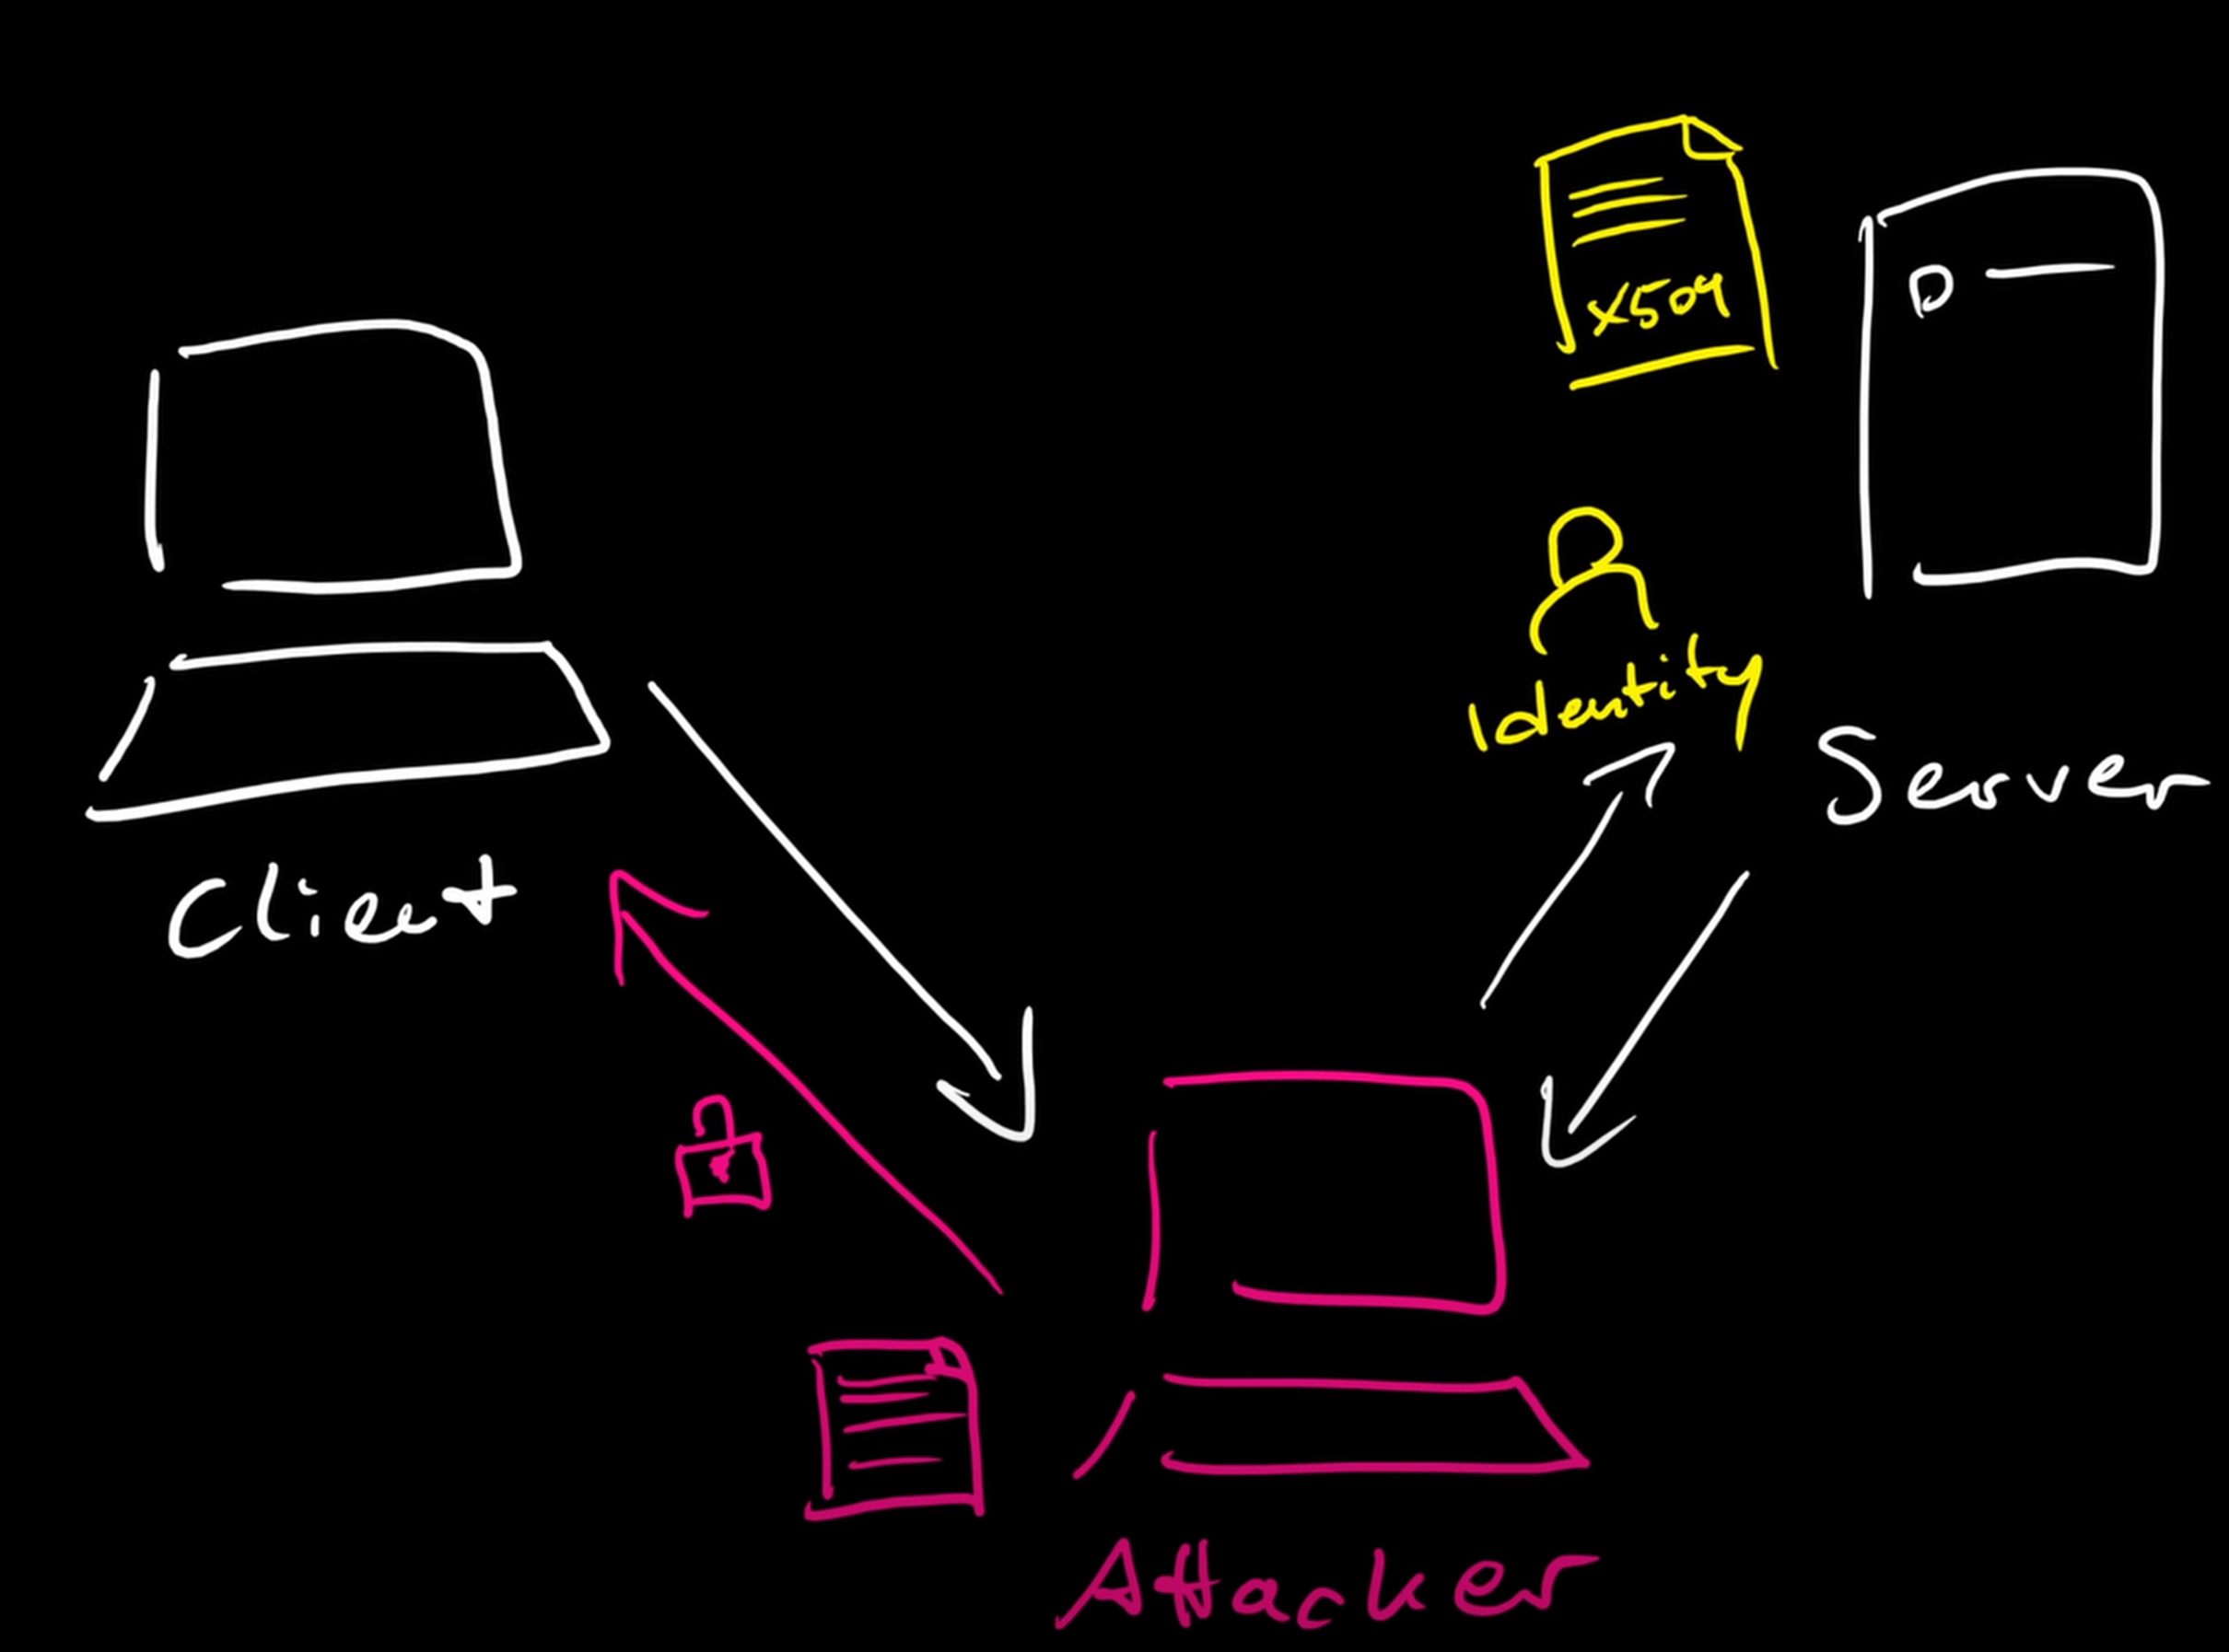 x509
Identity
Server
Client
Attacker